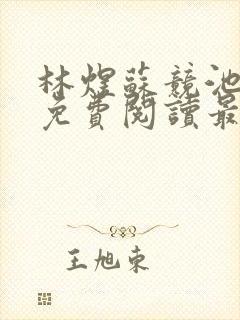 林煜蘇競池
免費閱讀最
王旭東